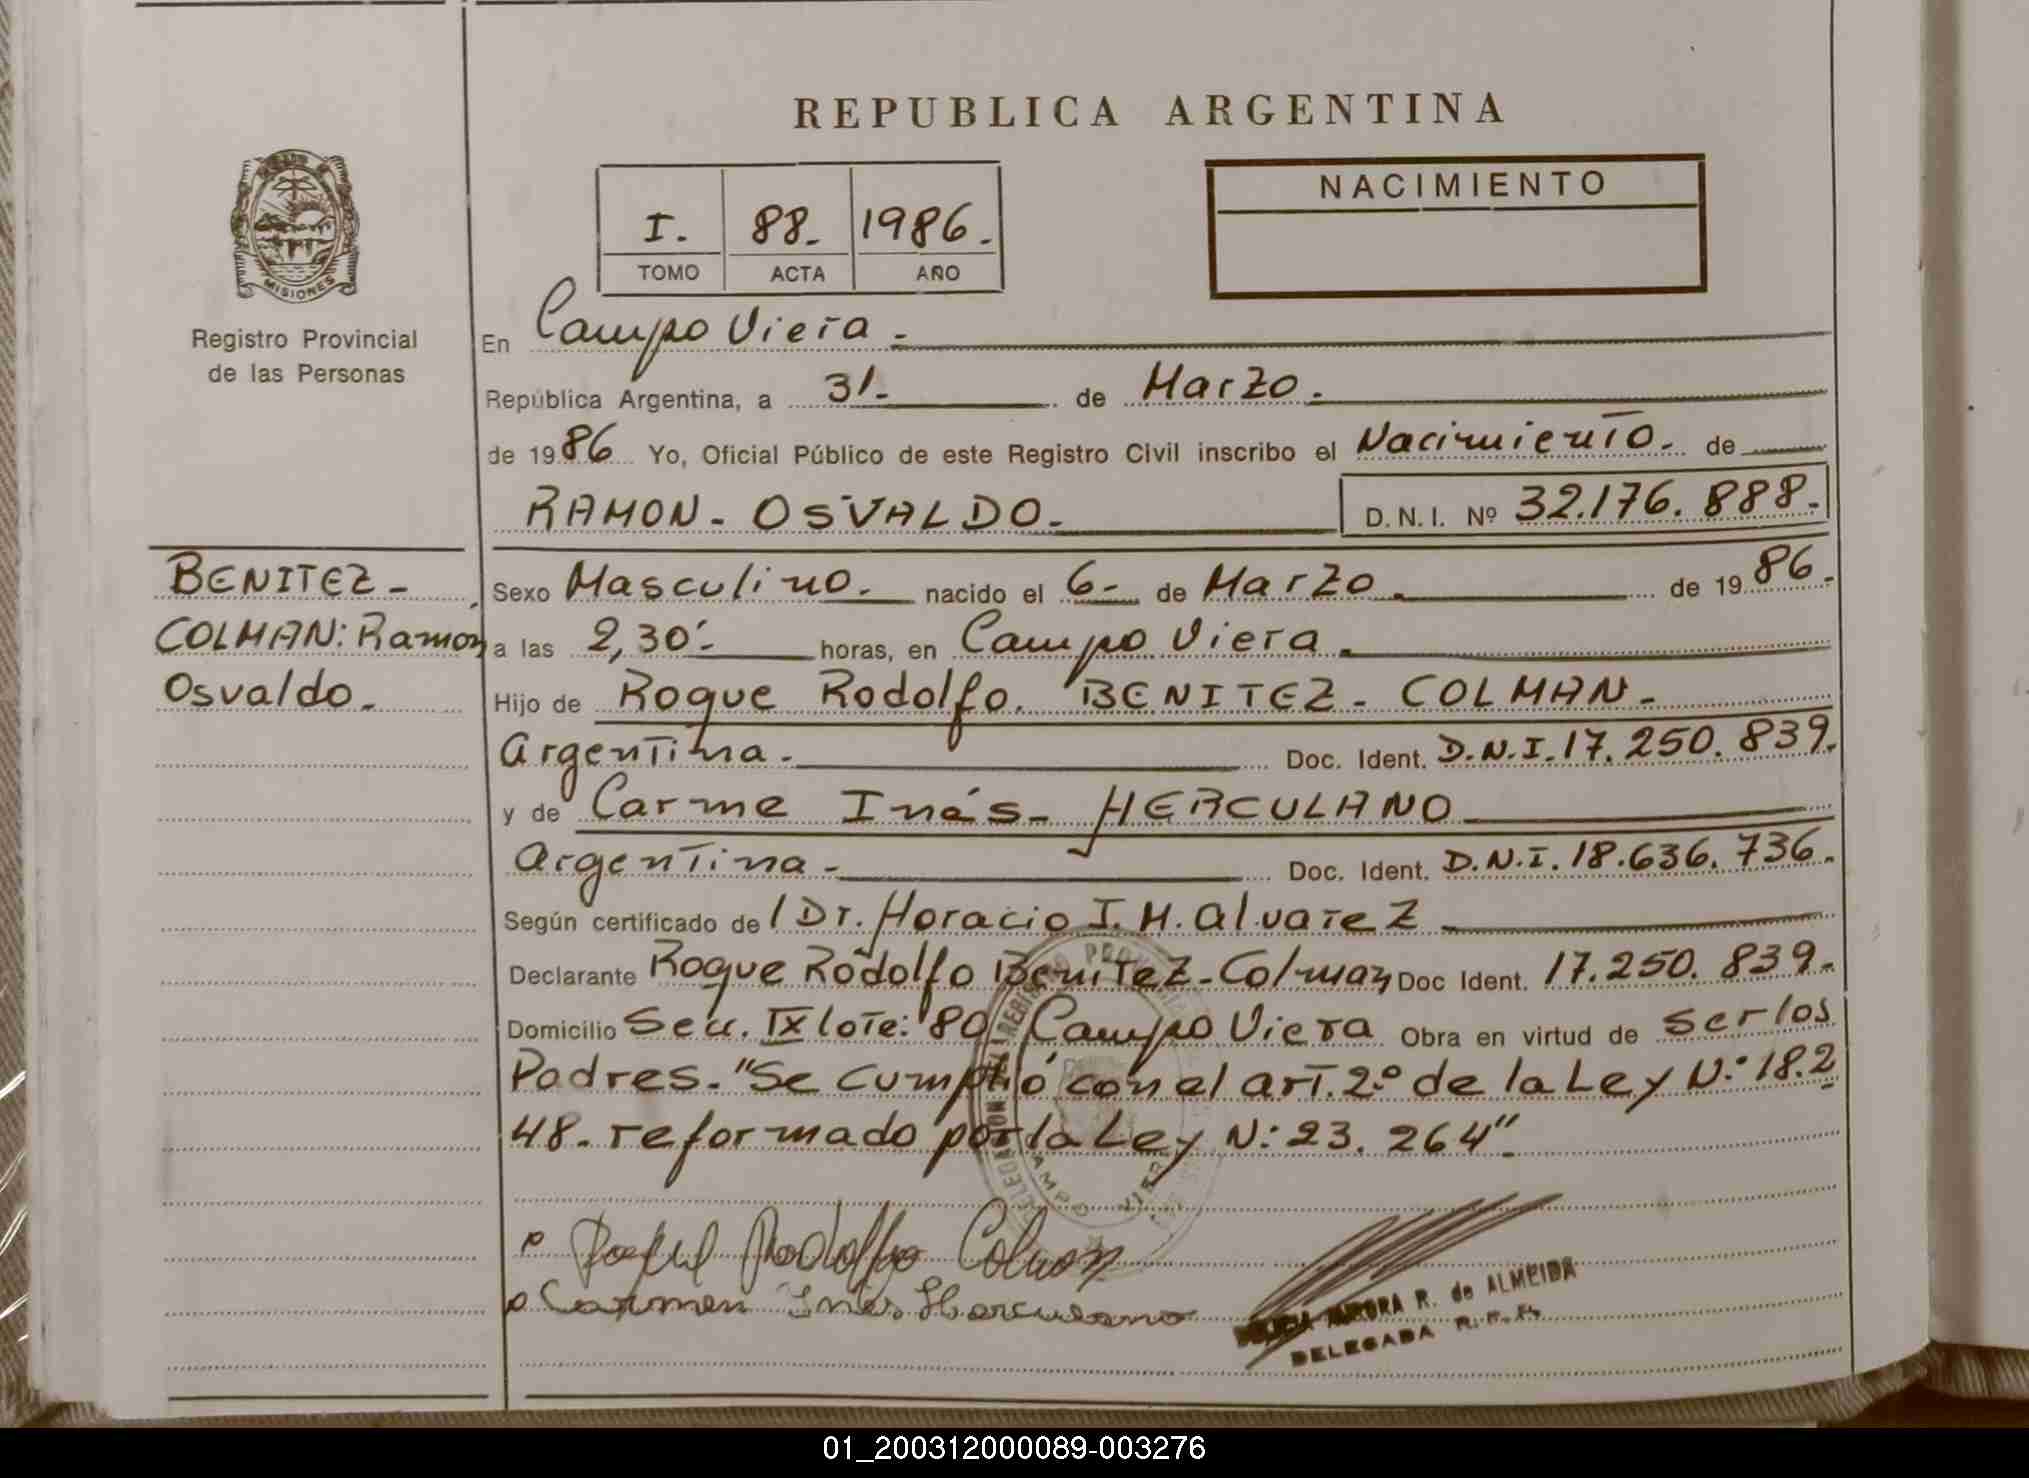 REPUBLICA ARGENTINA
I. 88. 1986.
TOMO ACTA AÑO
NACIMIENTO
MISIONES
Registro Provincial
de las Personas
En Campo Viera.
República Argentina, a 31. de Marzo.
de 1986 Yo, Oficial Público de este Registro Civil inscribo el Nacimiento. de
RAMON. OSVALDO. D.N.I. Nº 32.176.888.
BENITEZ.
COLMAN: Ramon
Osvaldo.
Sexo Masculino. nacido el 6. de Marzo. de 1986.
a las 2,30'. horas, en Campo Viera.
Hijo de Roque Rodolfo. BENITEZ. COLMAN.
Argentina. Doc. Ident. D.N.I. 17.250.839.
y de Carme Inés. HERCULANO
Argentina. Doc. Ident. D.N.I. 18.636.736.
Según certificado de l Dr. Horacio I. M. Alvarez
Declarante Roque Rodolfo Benitez. Colman Doc Ident. 17.250.839.
Domicilio Secc. IX lote: 80 Campo Viera Obra en virtud de ser los
Padres. "Se cumplió con el art. 2º de la Ley N.º 18.2
48. reformado por la Ley N: 23.264".
Rodolfo Colman
Carmen Ines Herculano
AURORA R. de ALMEIDA
DELEGADA R.P.P.
01_200312000089-003276